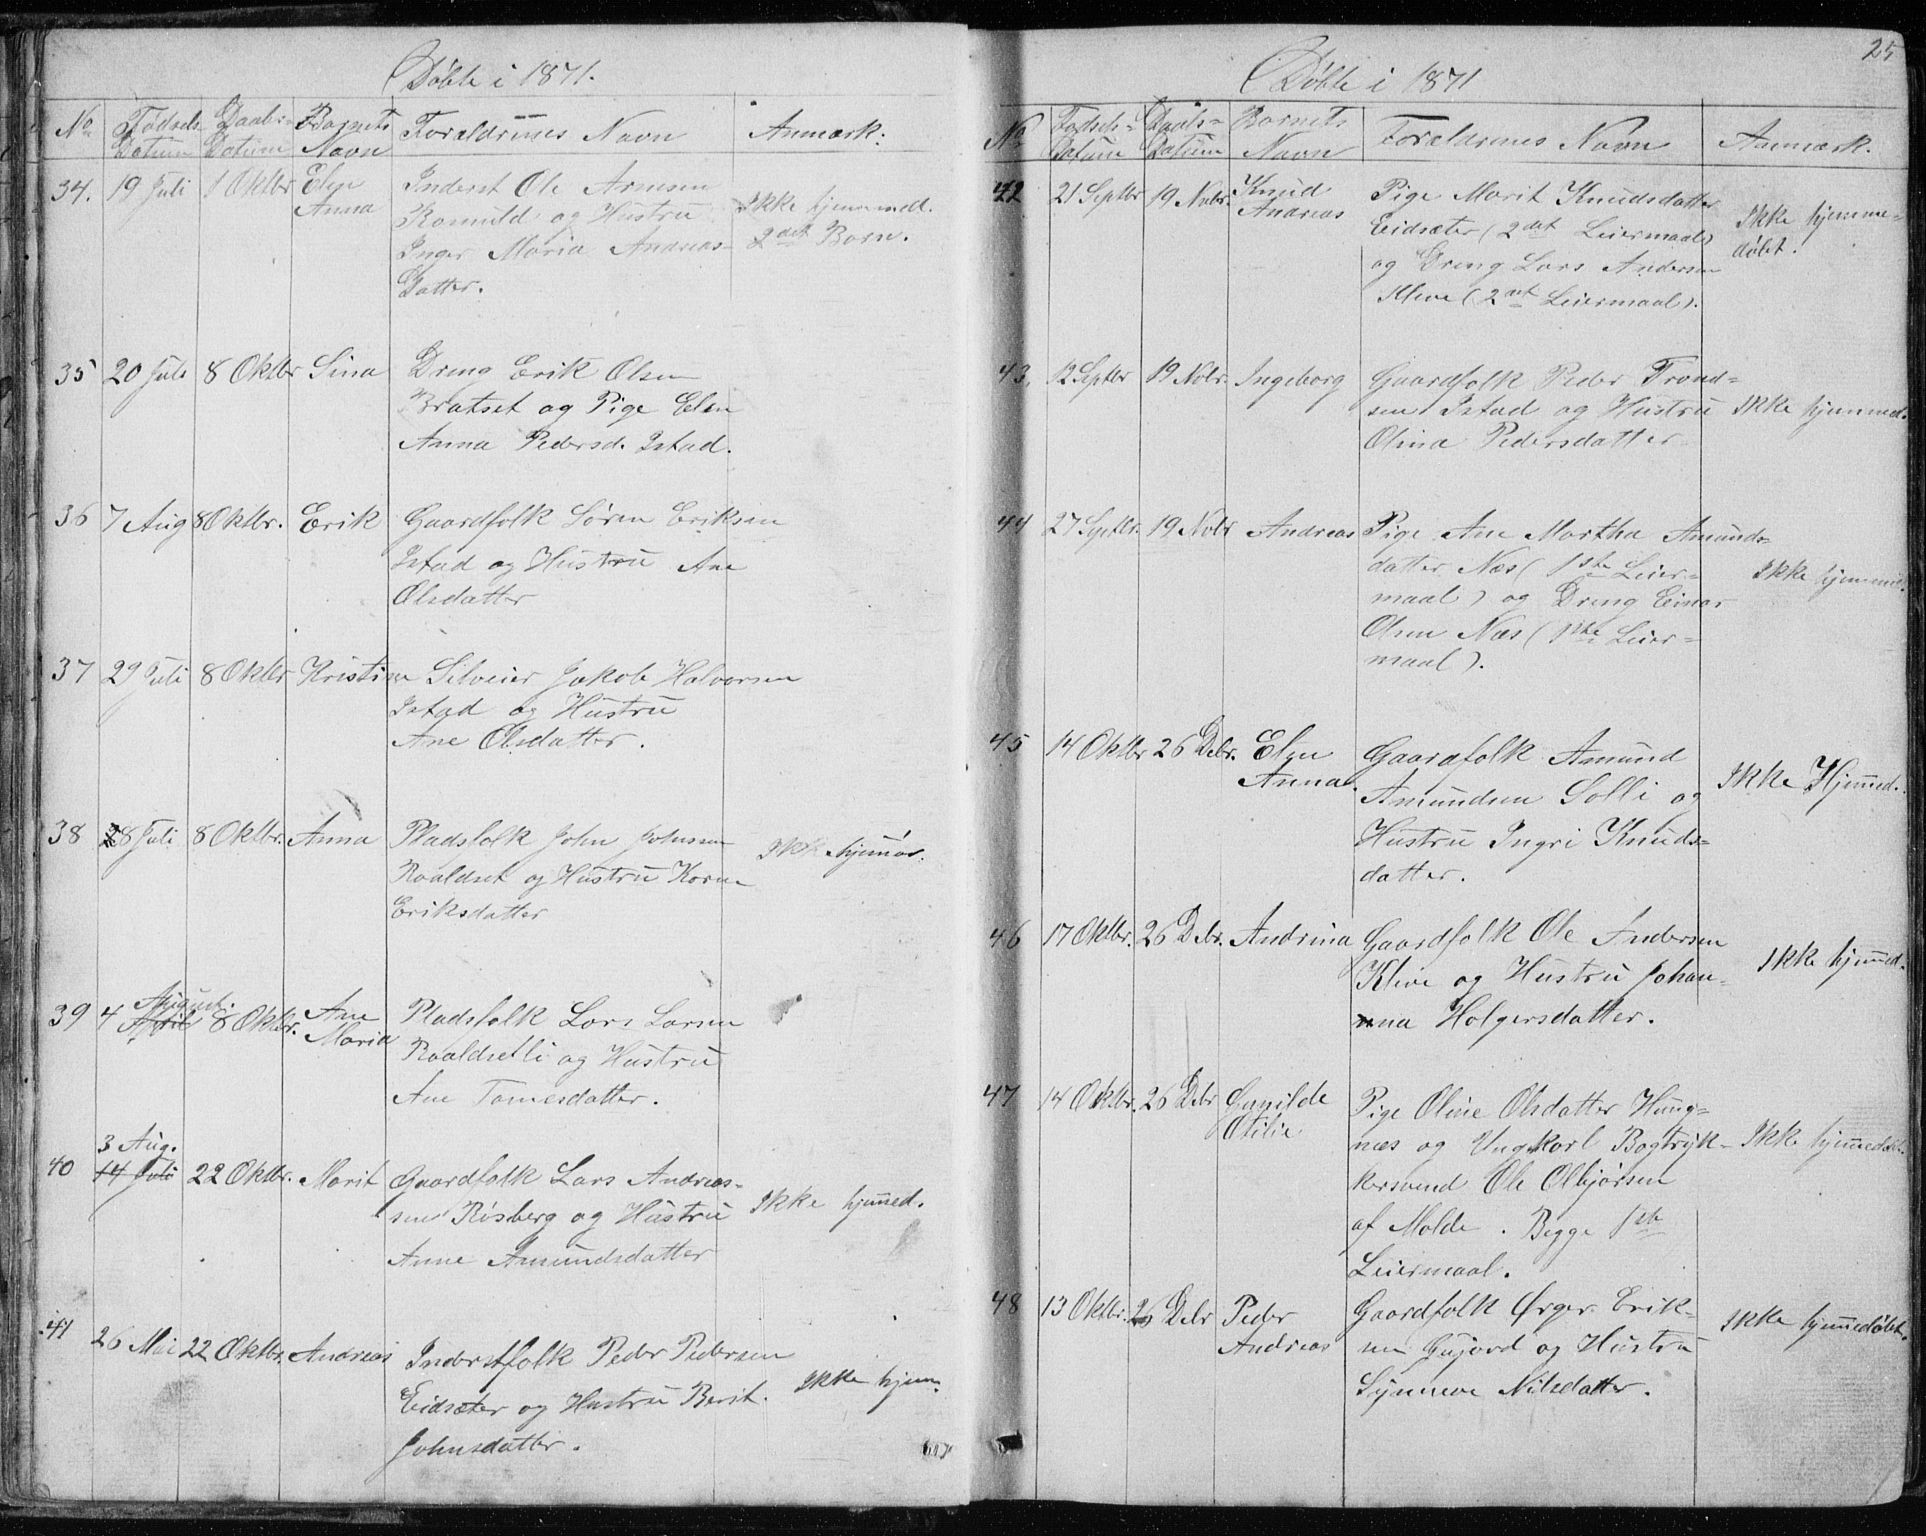 Døbte i 1871.
No Fødsels- Datum Daabs- Datum Barnets Navn Forældrenes Navn Anmærk:
34. 19 Juli 1 Oktbr Elen Anna Inderst Ole Arnesen
Romuld og Hustru
Inger Maria Andreas-
Datter.
Ikke hjemmed.
2det Barn.
35 20 Juli 8 Oktbr Sina Dreng Erik Olsen
Bratset og Pige Elen
Anna Pedersd. Istad.
36 7 Aug 8 Oktbr. Erik Gaardfolk Søren Eriksen
Istad og Hustru Ane
Olsdatter
37 29 Juli 8 Oktbr Kristine Selveier Jakob Halvorsen
Istad og Hustru
Ane Olsdatter.
38 28 Juli 8 Oktbr. Anna Pladsfolk John Johnsen
Roaldset og Hustru Karen
Eriksdatter
Ikke hjemm
39 4 August. April 8 Oktbr. Ane Maria Pladsfolk Lars Larsen
Roaldsetli og Hustru
Ane Tomesdatter.
40 3 Aug. 14 Juli 22 Oktbr. Marit Gaardfolk Lars Andreas-
sen Risberg og Hustru
Anne Amundsdatter
Ikke hjemmed.
41 26 Mai 22 Oktbr. Andreas Inderstfolk Peder Pedersen
Eidsæter og Hustru Berit
Johnsdatter.
Ikke hjem.
25
Døbte i 1871
No Fødsels- Datum Daabs- Datum Barnets Navn Forældrenes Navn Anmærk.
42 21 Septbr 19 Nvbr. Knud Andreas Pige Marit Knudsdatter
Eidsæter (2det Leiermaal)
og Dreng Lars Andersen
Kleve (2det Leiermaal).
Ikke hjemme-
døbt.
43. 12 Septbr 19 Nvbr. Ingeborg Gaardfolk Peder Trond-
sen Istad og Hustru
Olina Pedersdatter
Ikke hjemmed.
44 27 Septbr. 19 Nvbr Andreas Pige Ane Martha Amunds-
datter Næs (1ste Leier-
maal) og Dreng Einar
Olsen Næs (1ste Leier-
maal).
Ikke hjemmed.
45 14 Oktbr 26 Debr. Elen Anna Gaardfolk Amund
Amundsen Solli og
Hustru Ingri Knuds-
datter.
Ikke Hjemmed.
46 17 Oktbr. 26 Debr. Andrina Gaardfolk Ole Andersen
Kleve og Hustru Johan-
na Holgersdatter.
Ikke hjemmed.
47 14 Oktbr. 26 Debr Gunilde Otilie Pige Oline Olsdatter Hung-
næs og Ungkarl Bogtryk-
kersvend Ole Olbjørsen
af Molde. Begge 1ste
Leiermaal.
Ikke hjemmedøbt.
48 13 Oktbr. 26 Debr Peder Andreas Gaardfolk Ørger Erik-
sen Gujord og Hustru
Synneve Nilsdatter.
Ikke hjemmedøbt.